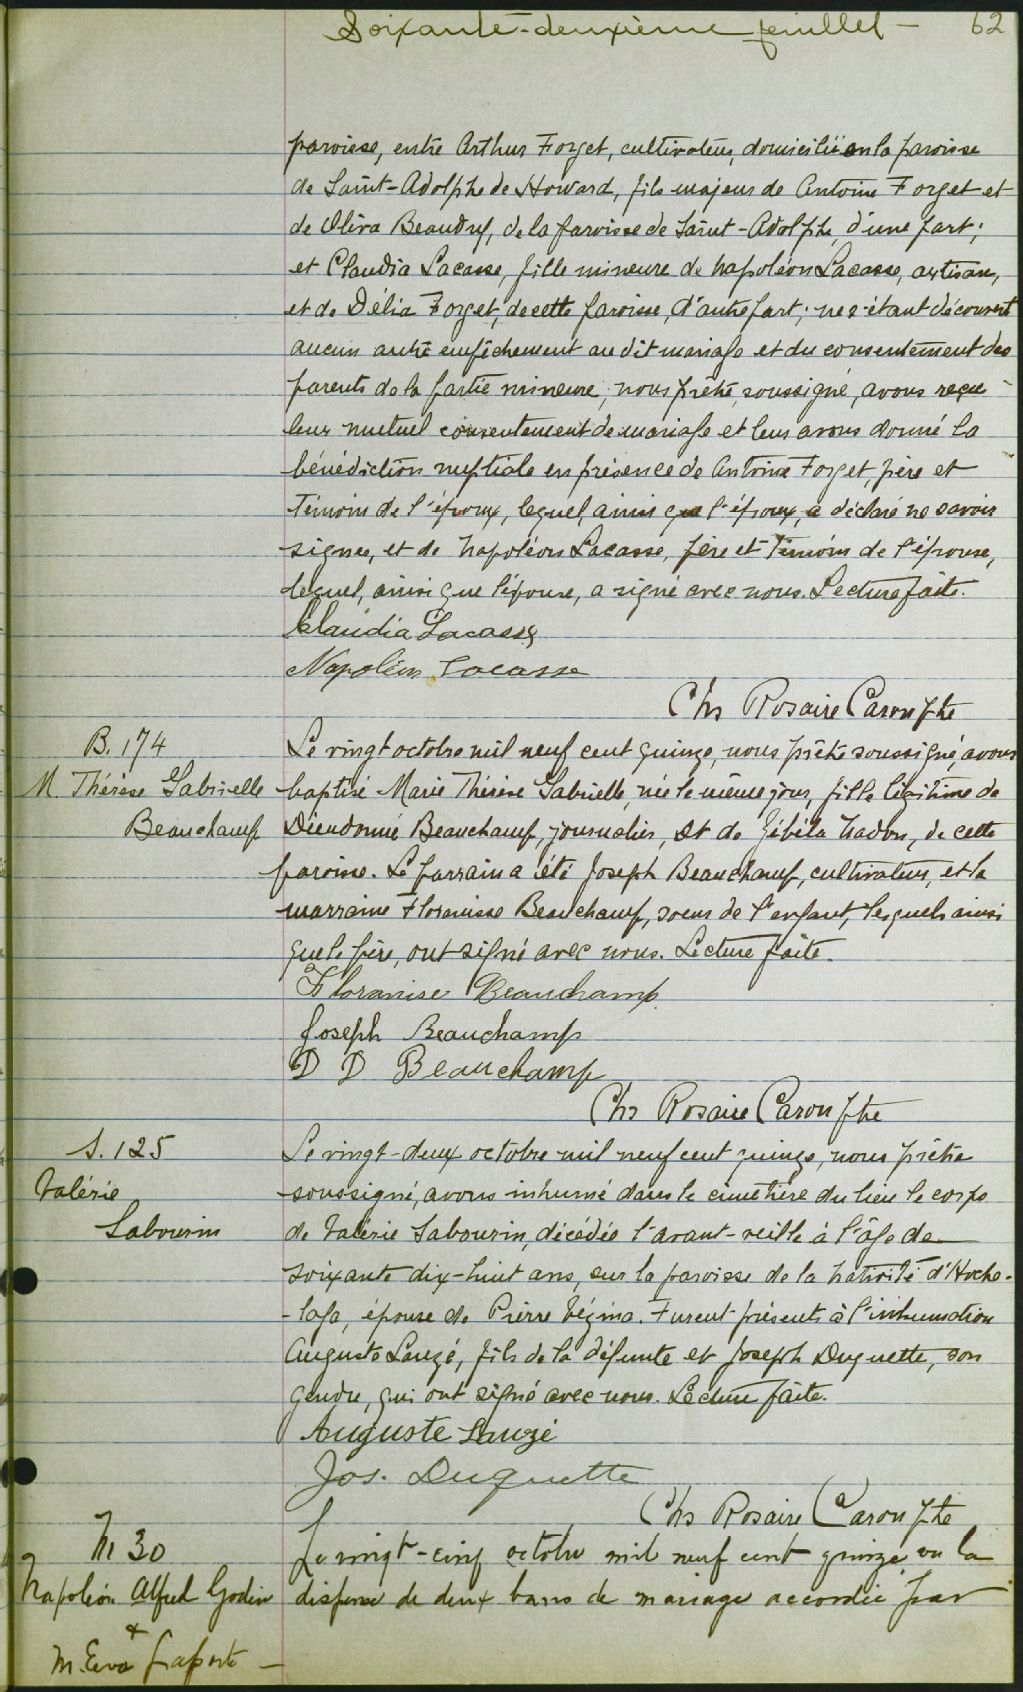 Soixante-deuxième feuillet — 62
paroisse, entre Arthur Forget, cultivateur, domicilié en la paroisse
de Saint-Adolphe de Howard, fils majeur de Antoine Forget et
de Oliva Beaudry, de la paroisse de Saint-Adolphe, d'une part;
et Claudia Lacasse, fille mineure de Napoléon Lacasse, artisan,
et de Délia Forget, de cette paroisse, d'autre part; ne s'étant découvert
aucun autre empêchement au dit mariage et du consentement des
parents de la partie mineure, nous prêtre, soussigné, avons reçu
leur mutuel consentement de mariage et leur avons donné la
bénédiction nuptiale en présence de Antoine Forget, père et
témoin de l'époux, lequel, ainsi que l'époux, a déclaré ne savoir
signer, et de Napoléon Lacasse, père et témoin de l'épouse,
lequel, ainsi que l'épouse, a signé avec nous. Lecture faite.
Claudia Lacasse
Napoléon Lacasse
Chs Rosaire Caron ptre
B. 174
M. Thérèse Gabrielle
Beauchamp
Le vingt octobre mil neuf cent quinze, nous prêtre soussigné avons
baptisé Marie Thérèse Gabrielle, née le même jour, fille légitime de
Dieudonné Beauchamp, journalier, et de Nadon, de cette
paroisse. Le parrain a été Joseph Beauchamp, cultivateur, et la
marraine Floranise Beauchamp, soeur de l'enfant, lesquels ainsi
que le père, ont signé avec nous. Lecture faite.
Floranise Beauchamp
Joseph Beauchamp
D D Beauchamp
Chs Rosaire Caron ptre
S. 125
Valérie
Sabourin
Le vingt-deux octobre mil neuf cent quinze, nous prêtre
soussigné, avons inhumé dans le cimetière du lieu le corps
de Valérie Sabourin, décédée l'avant-veille à l'âge de
soixante dix-huit ans, sur la paroisse de la Nativité d'Hoche-
-laga, épouse de Pierre Végina. Furent présents à l'inhumation
Auguste Lauzé, fils de la défunte et Joseph Duquette, son
gendre, qui ont signé avec nous. Lecture faite.
Auguste Lauzé
Jos. Duquette
Chs Rosaire Caron ptre
M 30
Napoléon Alfred Godin
+
M. Eva Laporte —
Le vingt-cinq octobre mil neuf cent quinze vu la
dispense de deux bans de mariage accordée par